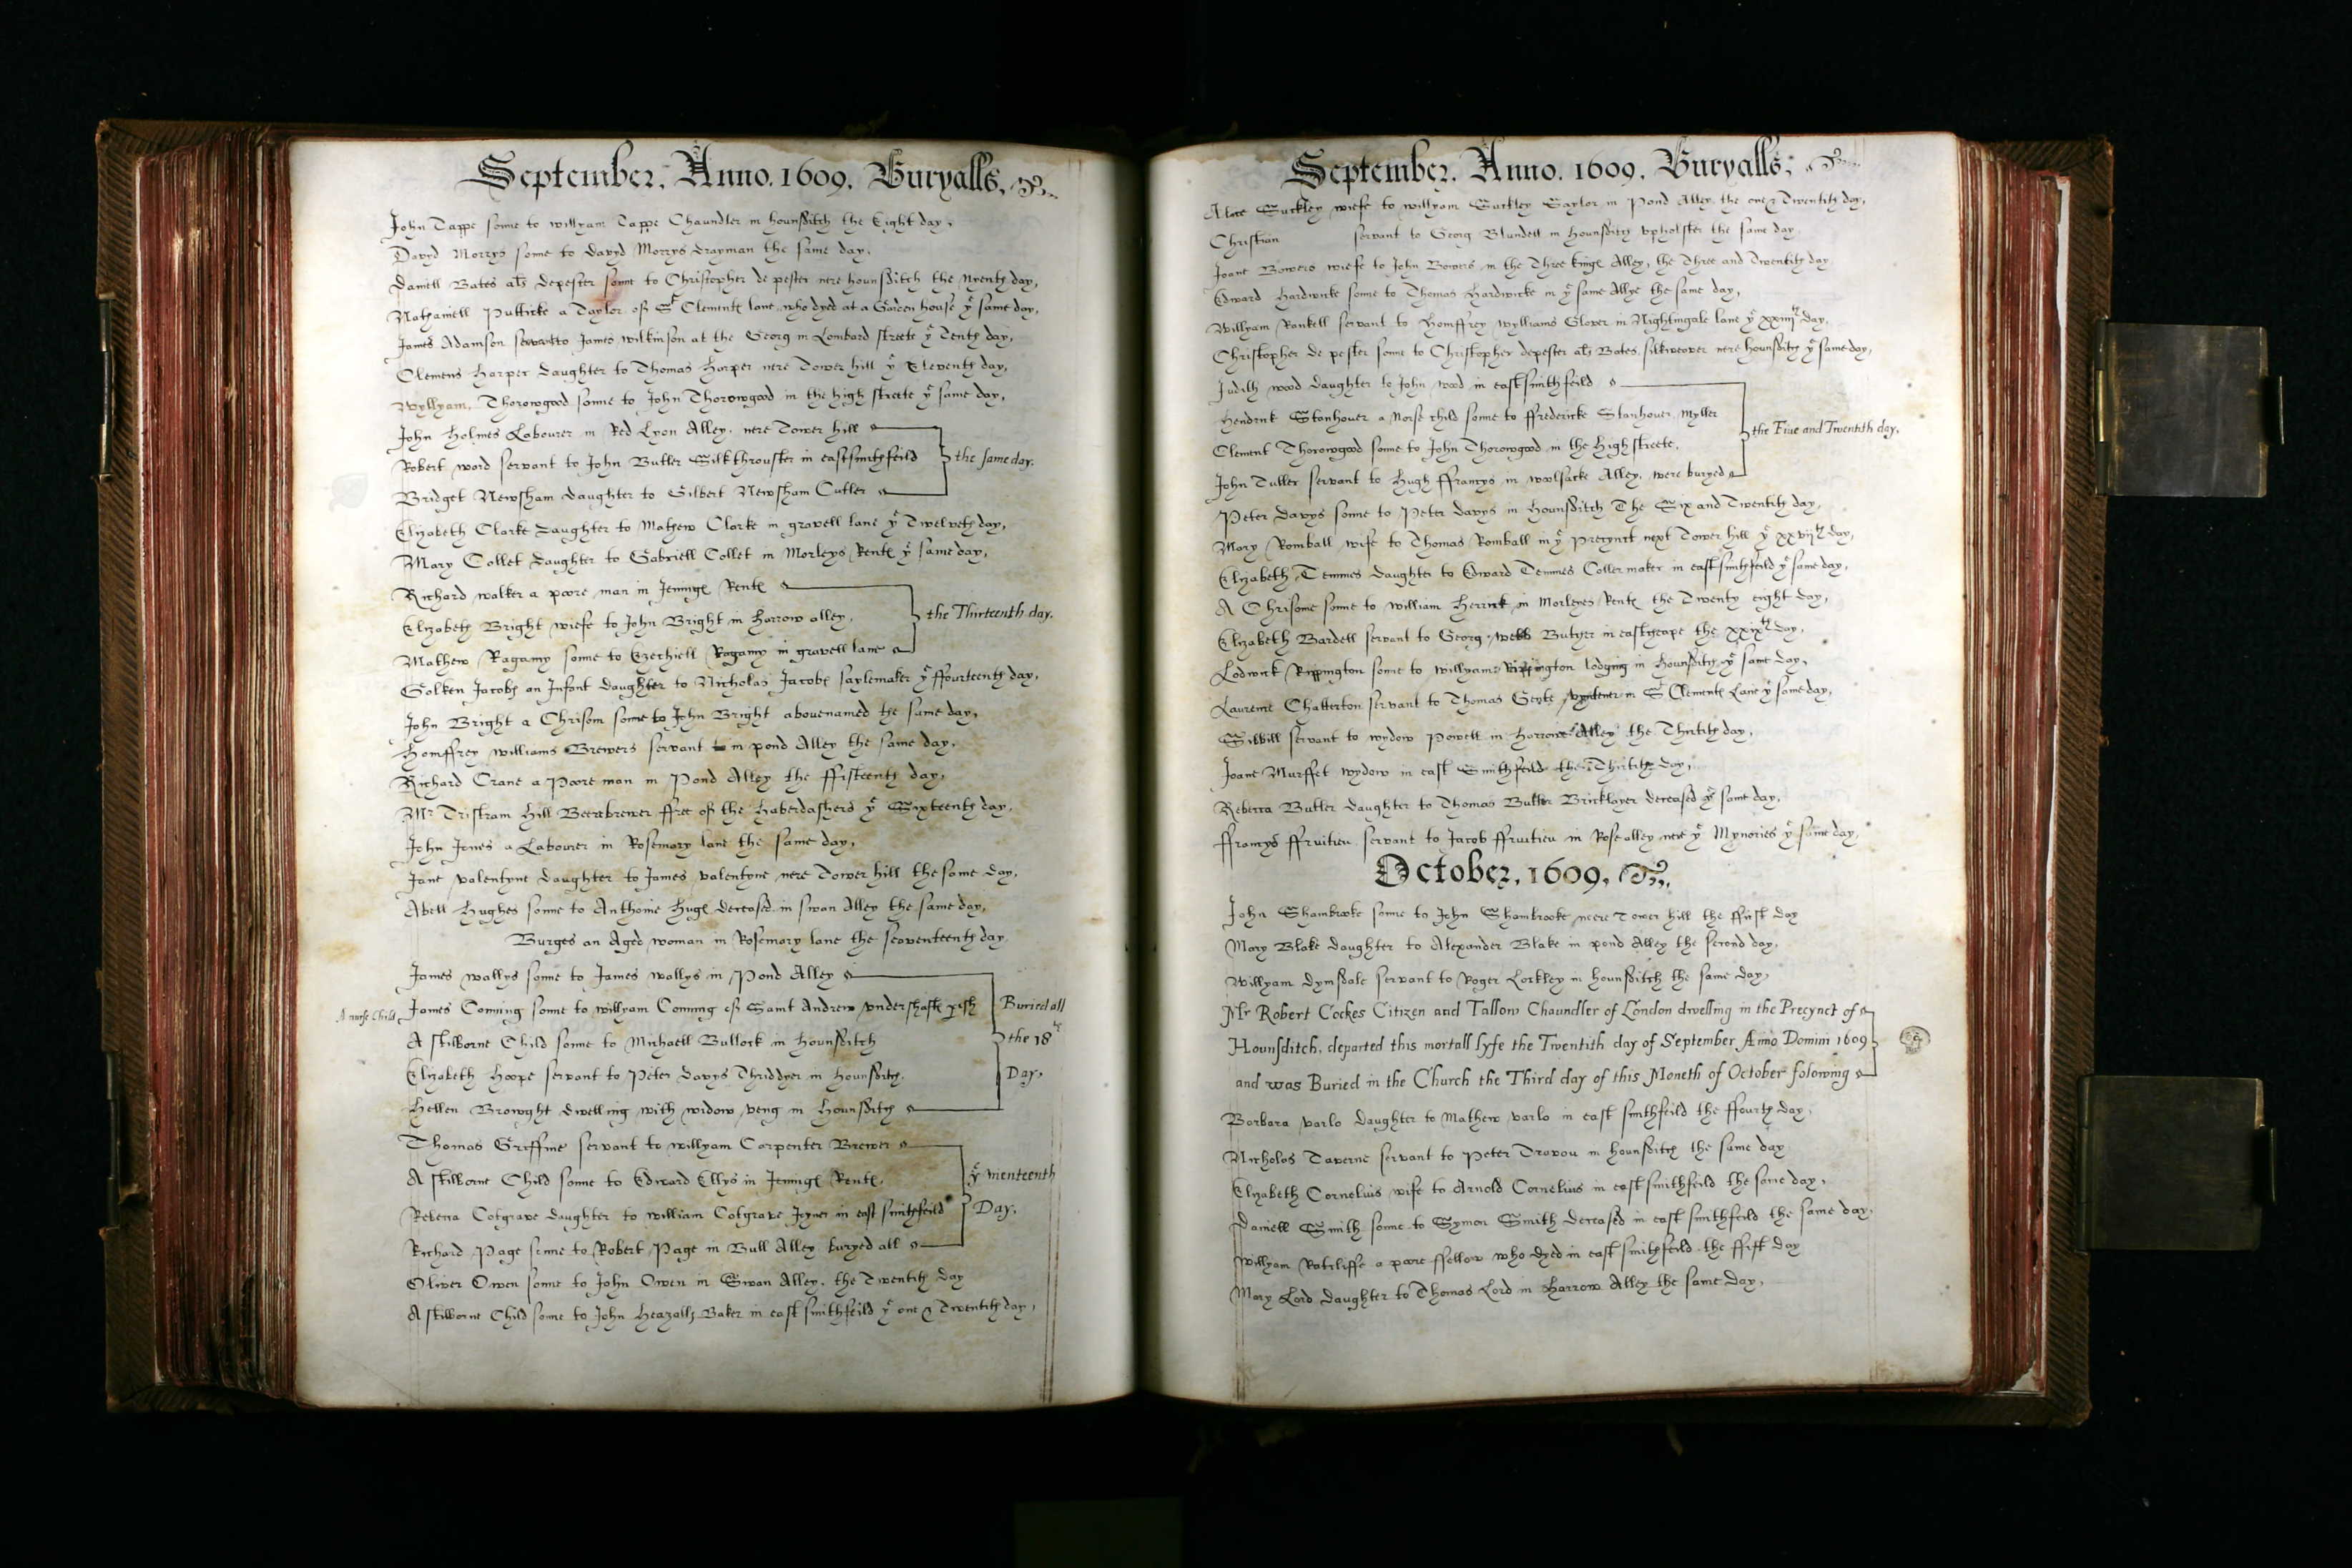 September. Anno. 1609. Buryalls.
John Tappe sonne to willyam Tappe Chaundler in hounsditch the Eight day,
Davyd Morrys sonne to davyd Morrys drayman the same day,
Daniell Bates als depester sonne to Christopher de pester nere hounsditch the Nyenth day,
Nathaniell Putticke a Taylor of St Clements lane who dyed at a Garden house ye same day,
James Adamson servant to James wilkinson at the Georg in Lombard streete ye Tenth day,
Clemens harper daughter to Thomas harper nere Tower hill ye Eleventh day,
Wyllyam Thorowgood sonne to John Thorowgood in the high streete ye same day,
John Holmes Labourer in Red Lyon Alley nere Tower hill
Robert ward servant to John Butler Silkthrouster in eastsmithfeild
the same day.
Bridget Newsham daughter to Gilbert Newsham Cutler
Elizabeth Clarke daughter to Mathew Clarke in gravell lane ye Twelveth day,
Mary Collet daughter to Gabriell Collet in Morleys Rents ye same day,
Richard walker a poore man in Jenings Rents
Elizabeth Bright wiefe to John Bright in harrow alley,
the Thirteenth day.
Mathew Ragamy sonne to Ezechiell Ragamy in gravell lane
Golken Jacobs an Infant daughter to Nicholas Jacobs saylemaker ye ffourteenth day,
John Bright a Chrisom sonne to John Bright abovenamed the same day,
homffrey williams Brewers servant in pond Alley the same day,
Richard Crane a Poore man in Pond Alley the ffifteenth day,
Mr Tristram hill Beerebrewer ffree of the haberdashers ye Sixteenth day,
John Jones a Labourer in Rosemary lane the same day,
Jane valentyne daughter to James valentyne nere Tower hill the same day,
Abell hughes sonne to Anthonie hugs deceased in swan Alley the same day,
Burges an Aged woman in Rosemary lane the seaventeenth day
James wallys sonne to James wallys in Pond Alley
A nurse Child
James Coming sonne to willyam Coming of Saint Andrew undershaft pish
Buried all
A stilborne Child sonne to Michaell Bullock in hounsditch
the 18th
Elizabeth hoope servant to Peter davys Thriddyer in hounsditch
Day,
hellen Browght dwelling with widow veng in hounsditch
Thomas Griffine servant to willyam Carpenter Brewer
A stilborne Child sonne to Edward Ellys in Jenings Rents,
ye nienteenth
Rebecca Cotgrave daughter to william Cotgrave Joyner in east smithfeild
Day,
Richard Page sonne to Robert Page in Bull Alley buryed all
Oliver Owen sonne to John Owen in Swan Alley, the Twentith day
A stilborne Child sonne to John heazalls Baker in east smithfeild ye one & Twentith day,
September. Anno. 1609. Buryalls.
Alice Suckley wiefe to willyam Suckley Saylor in Pond Alley the one & Twentith day,
Christian servant to Georg Blundell in hounsditch upholster the same day
Joane Bowers wiefe to John Bowers in the Three kings Alley, the Three and Twentith day
Edward hardwicke sonne to Thomas hardwicke in ye same Allye the same day,
Willyam Rankell servant to homffrey wylliams Glover in Nightingale lane ye xxiiijth day,
Christopher de pester sonne to Christopher depester als Bates silkweaver nere hounsditch ye same day,
Judith wood daughter to John wood in eastsmithfeild
hendrick Stanhover a Norse child sonne to ffredericke Stanhover Myller
the Five and Twentith day.
Clement Thorowgood sonne to John Thorowgood in the high streete,
John Tuller servant to Hugh ffrancys in woolsacke Alley, were buryed
Peter davys sonne to Peter davys in hounsditch The Six and Twentith day,
Mary Romball wife to Thomas Romball in ye precynct next Tower hill ye xxvijth day,
Elizabeth Temmes daughter to Edward Temmes Coller maker in east smithfeild ye same day,
A Chrisome sonne to william herrick in Morleyes Rents the Twenty eight day,
Elizabeth Bardell servant to Georg webb Butcher in eastcheape the xxixth day,
Lodwick Rippington sonne to willyam Rippington lodging in hounsditch ye same day,
Laurence Chatterton servant to Thomas in St Clements Lane ye same day,
Sibbill servant to wydow Powell in harrow Alley the Thirtith day,
Joane Murffet wydow in east Smithfeild the Thirtith day,
Rebecca Butler daughter to Thomas Butler Bricklayer deceased ye same day,
ffrancys ffruitieu servant to Jacob ffruitieu in Rose alley nere ye Mynories ye same day,
October, 1609,
John Shambrooke sonne to John Shambrooke neere Tower hill the ffirst day
Mary Blake daughter to Alexander Blake in pond Alley the second day,
Willyam dymsdale servant to Roger Lockley in hounsditch the same day,
Mr Robert Cockes Citizen and Tallow Chaundler of London dwelling in the Precynct of
Hounsditch, departed this mortall lyfe the Twentith day of September Anno Domini 1609
and was Buried in the Church the Third day of this Moneth of October folowing
Barbara varlo daughter to Mathew varlo in east smithfeild the ffourth day,
Nicholas Taverne servant to Peter Dravou in hounsditch the same day
Elizabeth Cornelius wife to Arnold Cornelius in east smithfeild the same day,
Daniell Smith sonne to Symon Smith deceased in east smithfeild the same day,
Willyam Ratcliffe a poore ffellow who dyed in east smithfeild the ffift day
Mary Lord daughter to Thomas Lord in harrow Alley the same day,